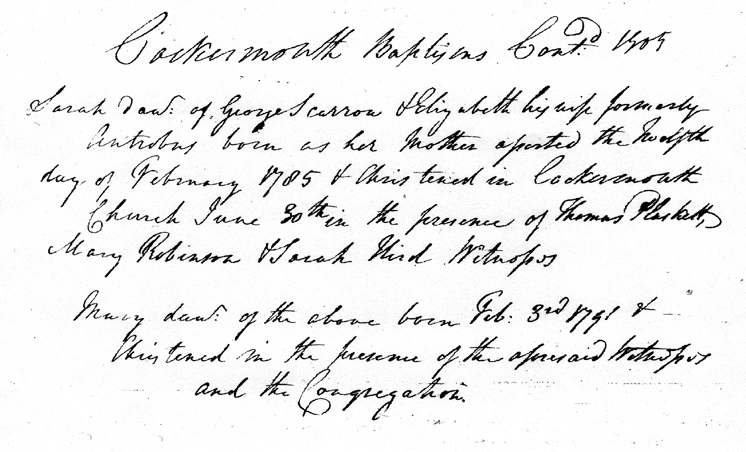 Cockermouth Baptisms Contd. 1785
Sarah dawr. of George Scarrow & Elizabeth his wife formerly
Antrobus born as her Mother asserted the Twelfth
day of February 1785 & Christened in Cockersmouth
Church June 30th in the presence of Thomas Plaskett,
Mary Robinson & Sarah Hird Witnesses
Mary dawr. of the above born Feb: 3rd 1791 &
Christened in the presence of the aforesaid Witnesses
and the Congregation.